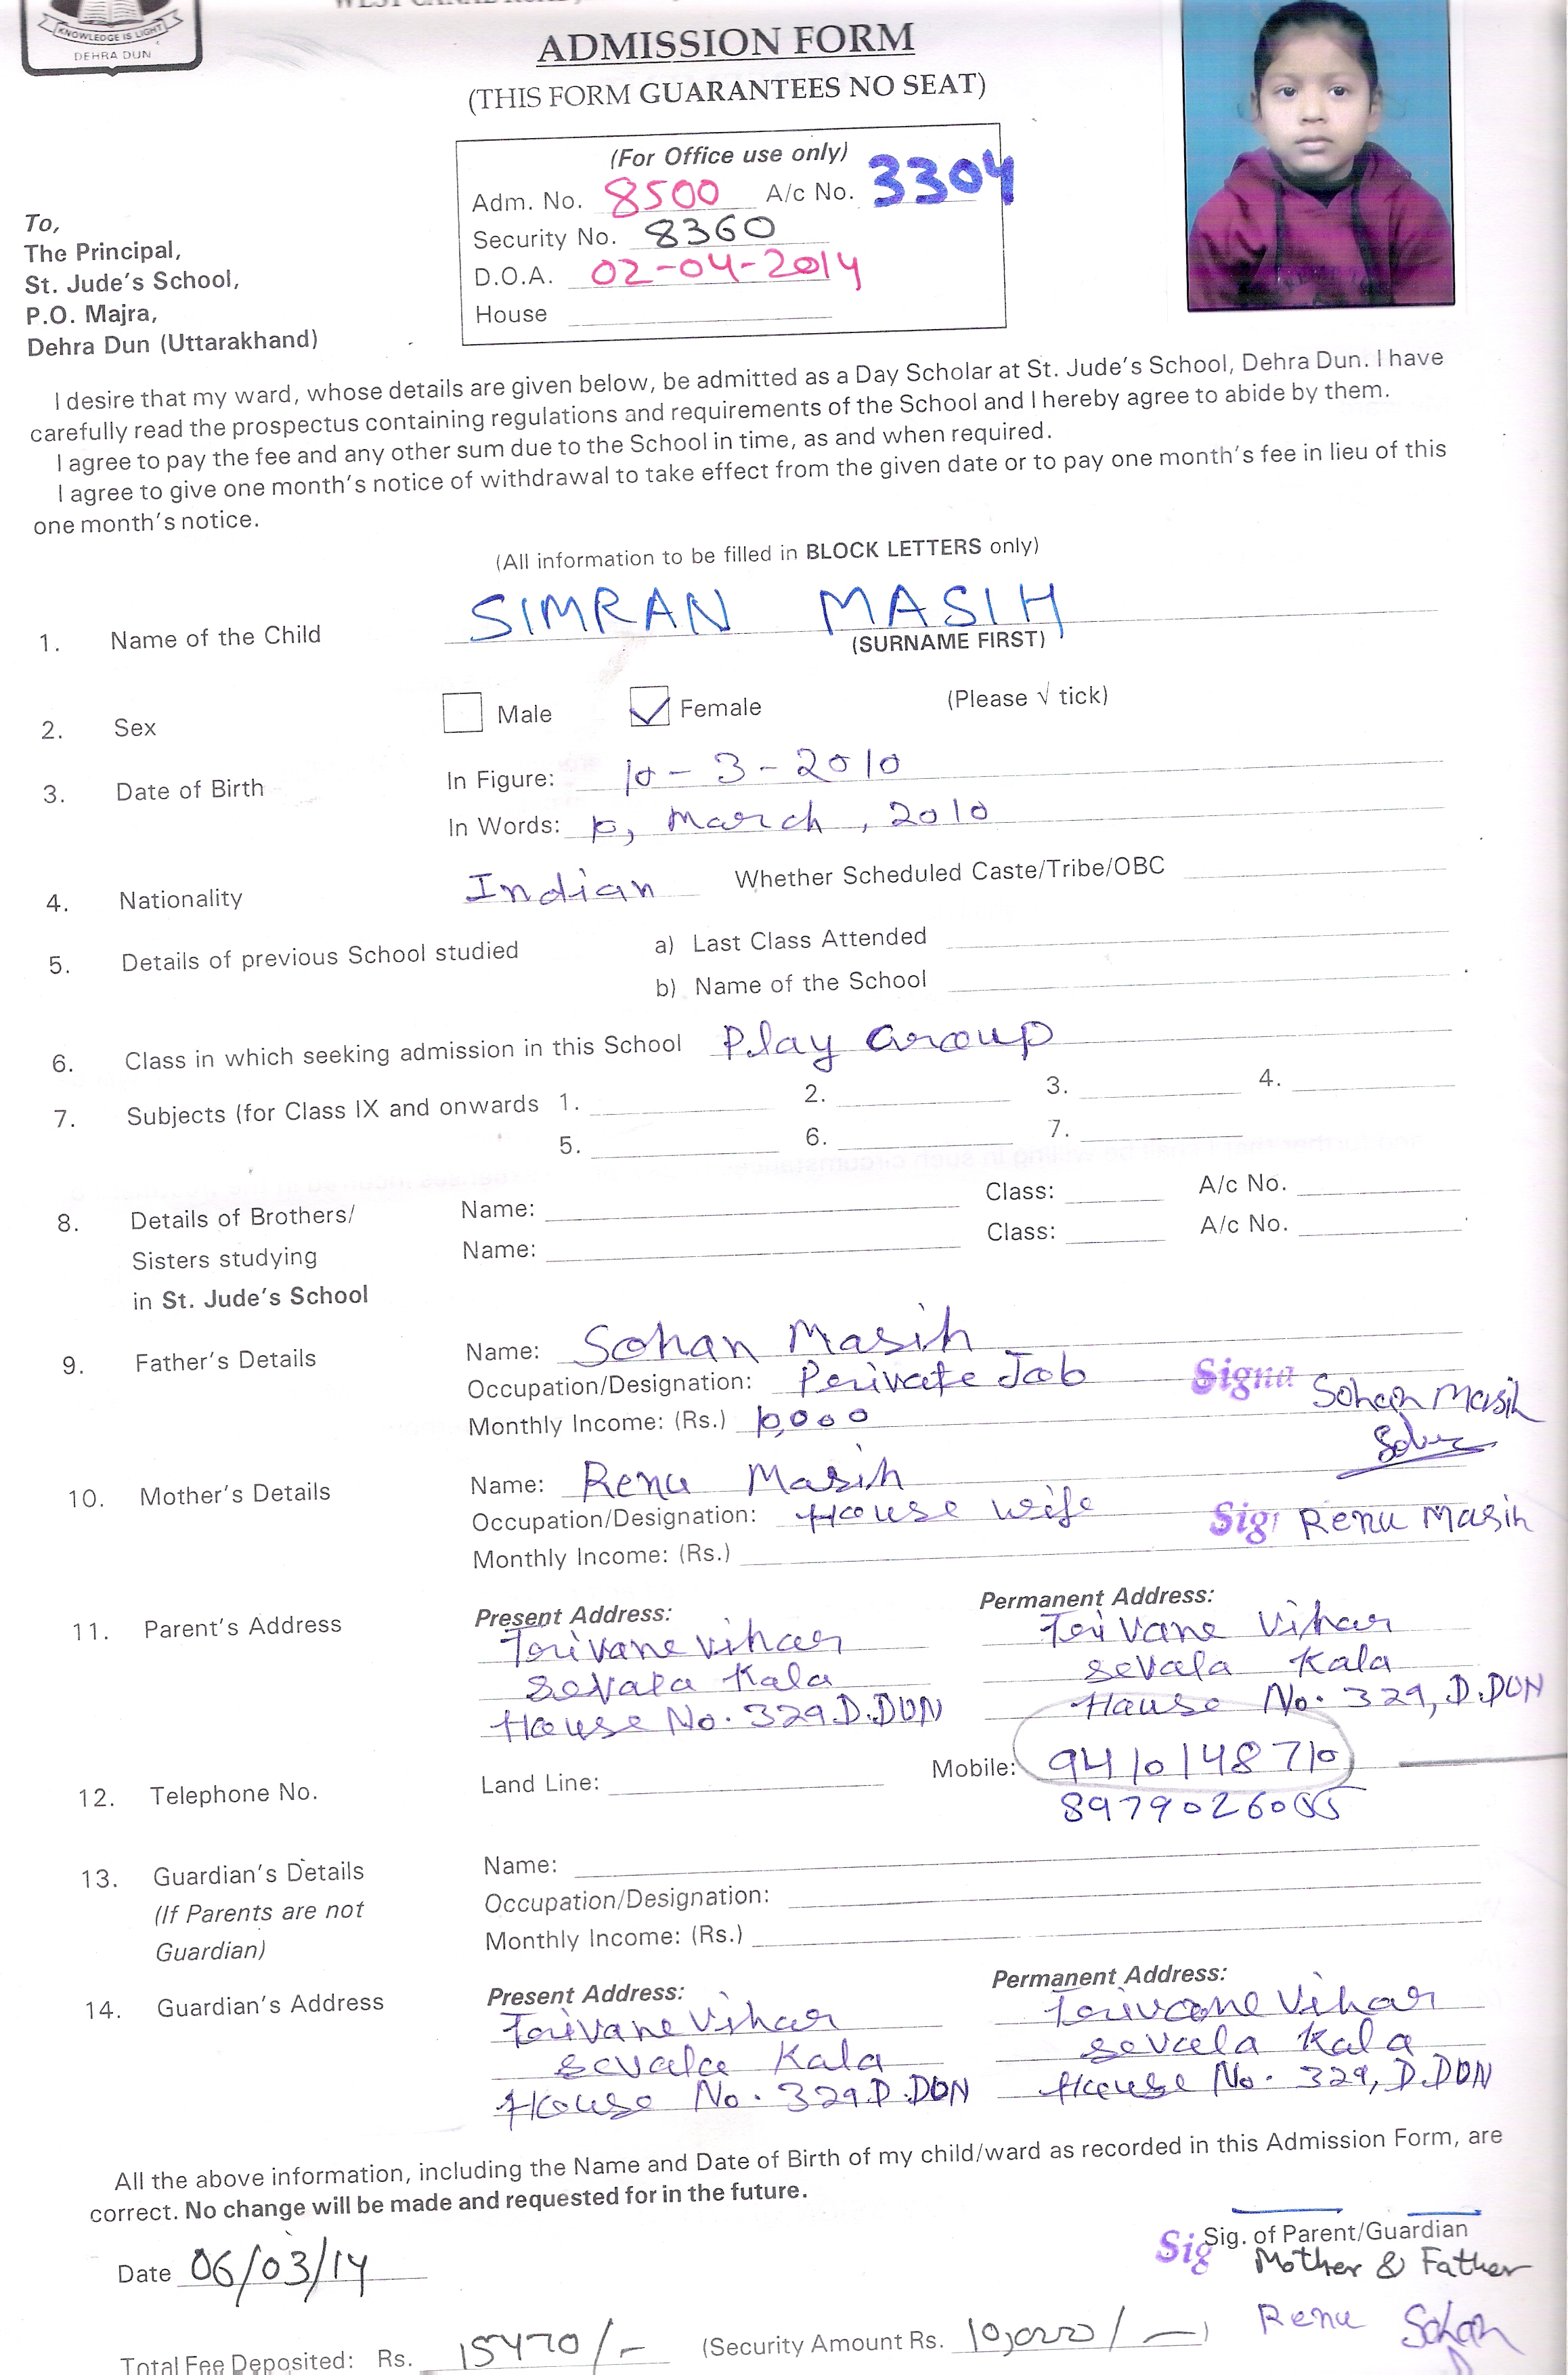 KNOWLEDGE IS LIGHT
DEHRA DUN
ADMISSION FORM
(THIS FORM GUARANTEES NO SEAT)
(For Office use only)
Adm. No. 8500 A/c No. 3304
Security No. 8360
D.O.A. 02-04-2014
House
To,
The Principal,
St. Jude's School,
P.O. Majra,
Dehra Dun (Uttarakhand)
I desire that my ward, whose details are given below, be admitted as a Day Scholar at St. Jude's School, Dehra Dun. I have
carefully read the prospectus containing regulations and requirements of the School and I hereby agree to abide by them.
I agree to pay the fee and any other sum due to the School in time, as and when required.
I agree to give one month's notice of withdrawal to take effect from the given date or to pay one month's fee in lieu of this
one month's notice.
(All information to be filled in BLOCK LETTERS only)
1. Name of the Child SIMRAN MASIH
(SURNAME FIRST)
2. Sex Male Female (Please √ tick)
3. Date of Birth In Figure: 10-3-2010
In Words: 10, March, 2010
4. Nationality Indian Whether Scheduled Caste/Tribe/OBC
5. Details of previous School studied a) Last Class Attended
b) Name of the School
6. Class in which seeking admission in this School Play Group
7. Subjects (for Class IX and onwards 1. 2. 3. 4.
5. 6. 7.
8. Details of Brothers/ Name: Class: A/c No.
Sisters studying Name: Class: A/c No.
in St. Jude's School
9. Father's Details Name: Sohan Masih
Occupation/Designation: Perivate Job Signa Sohan Masih
Monthly Income: (Rs.) 10,000
10. Mother's Details Name: Renu Masih
Occupation/Designation: House wife Sig Renu Masih
Monthly Income: (Rs.)
11. Parent's Address Present Address: Permanent Address:
Terivane Vihar Terivane Vihar
Sevala Kala Sevala Kala
House No. 329 D.DUN House No. 329, D.DUN
12. Telephone No. Land Line: Mobile: 9410148710
8979026055
13. Guardian's Details Name:
(If Parents are not Occupation/Designation:
Guardian) Monthly Income: (Rs.)
14. Guardian's Address Present Address: Permanent Address:
Terivane Vihar Terivane Vihar
Sevala Kala Sevala Kala
House No. 329 D.DUN House No. 329, D.DUN
All the above information, including the Name and Date of Birth of my child/ward as recorded in this Admission Form, are
correct. No change will be made and requested for in the future.
Sig Sig. of Parent/Guardian
Date 06/03/14 Mother & Father
Renu Sohan
Total Fee Deposited: Rs. 15470/- (Security Amount Rs. 10,000/-)